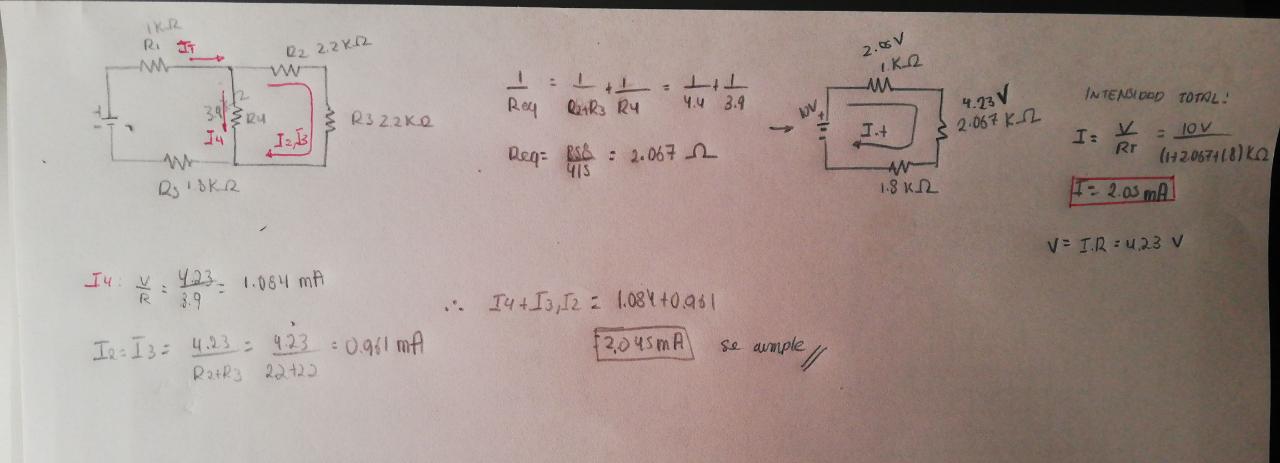 1KΩ
R1 IT
R2 2.2KΩ
3.9 R4
I4 I2,I3
R3 2.2KΩ
1.8KΩ
1/Req = 1/R2+R3 + 1/R4 = 1/4.4 + 1/3.9
Req = 858/415 = 2.067 Ω
2.05V
1KΩ
10V
I.t
4.23V
2.067 KΩ
1.8KΩ
INTENSIDAD TOTAL:
I = V/RT = 10V/(1+2.067+1.8)KΩ
I = 2.05mA
V = I.R = 4.23 V
I4: V/R = 4.23/3.9 = 1.084 mA
I2=I3 = 4.23/R2+R3 = 4.23/2.2+2.2 = 0.961 mA
∴ I4+I3,I2 = 1.084+0.961
2,045mA se cumple //